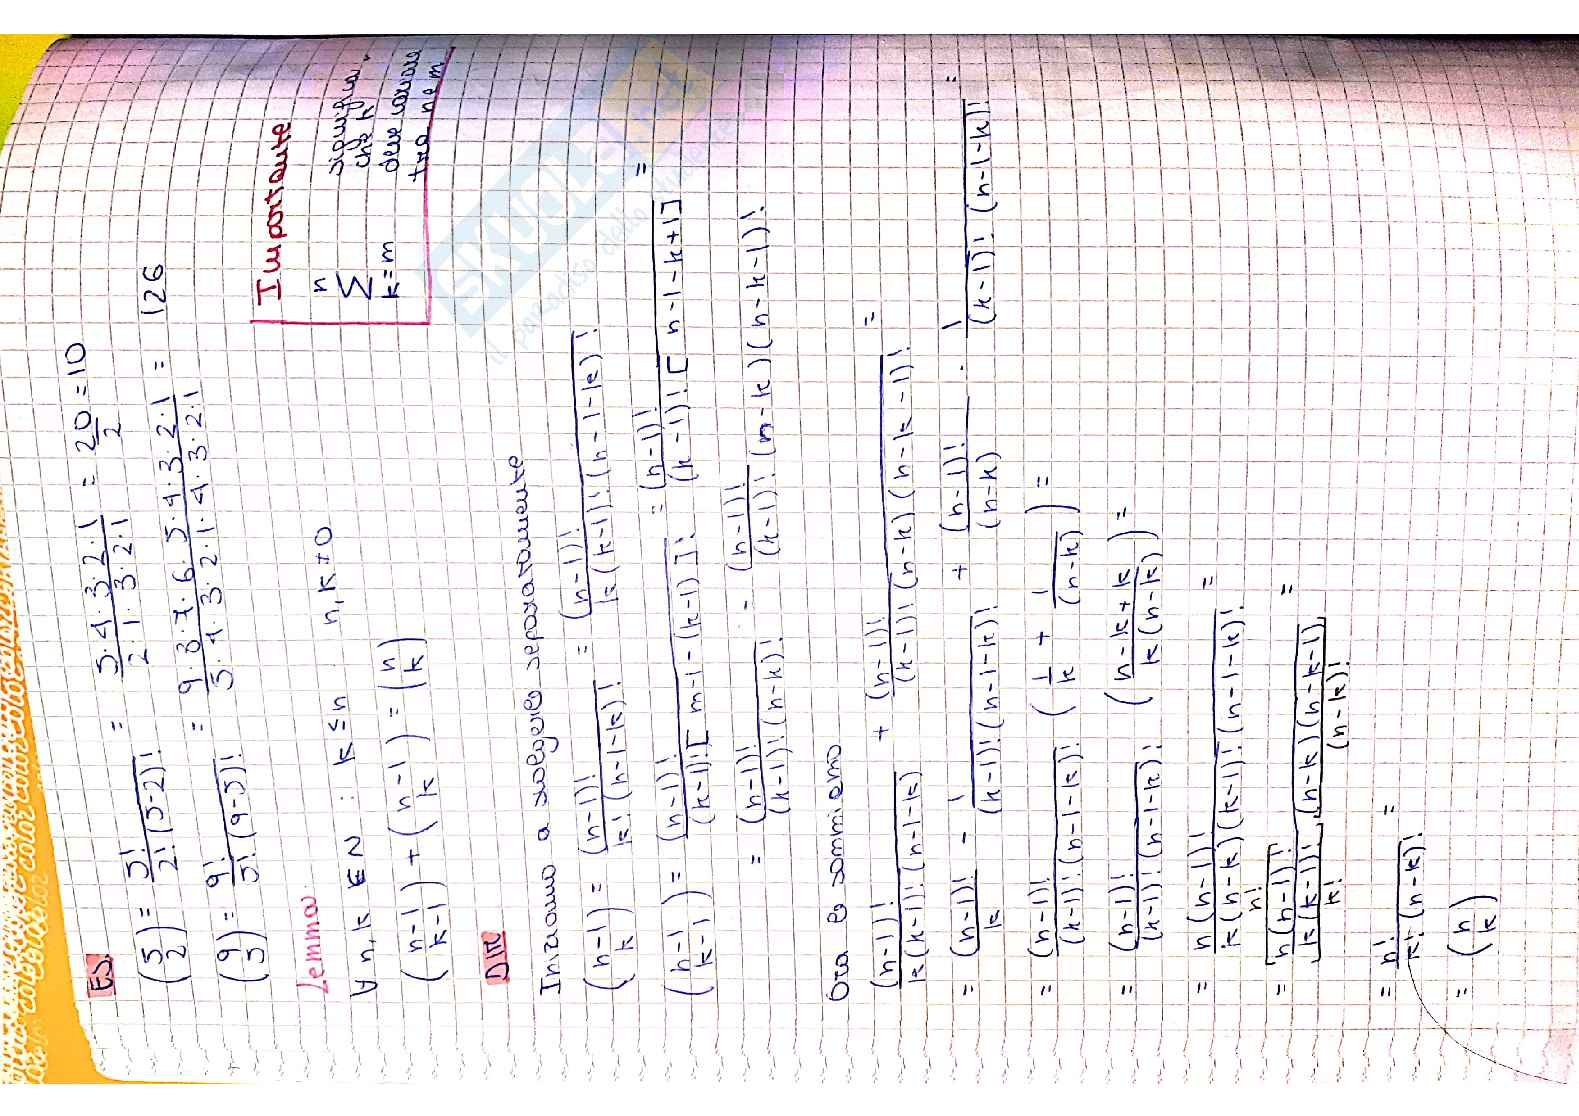 ES.
(5 2) = 5! / 2!(5-2)! = 5·4·3·2·1 / 2·1·3·2·1 = 20/2 = 10
(9 5) = 9! / 5!(9-5)! = 9·8·7·6·5·4·3·2·1 / 5·4·3·2·1·4·3·2·1 = 126
Importante
n Σ k=m significa
che k
deve variare
tra n e m
Lemma
∀ n,k ∈ N : k ≤ n n,k ≠ 0
(n-1 k-1) + (n-1 k) = (n k)
DIM
Iniziamo a svolgere separatamente
(n-1 k) = (n-1)! / k!(n-1-k)! = (n-1)! / k(k-1)!(n-1-k)!
(n-1 k-1) = (n-1)! / (k-1)![n-1-(k-1)]! = (n-1)! / (k-1)![n-1-k+1] =
= (n-1)! / (k-1)!(n-k)! = (n-1)! / (k-1)!(n-k)(n-k-1)!
Ora li sommiamo
(n-1)! / k(k-1)!(n-1-k) + (n-1)! / (k-1)!(n-k)(n-k-1)! =
= (n-1)! / k · 1 / (k-1)!(n-1-k)! + (n-1)! / (n-k) · 1 / (k-1)!(n-1-k)! =
= (n-1)! / (k-1)!(n-1-k)! (1/k + 1/(n-k)) =
= (n-1)! / (k-1)!(n-1-k)! (n-k+k / k(n-k)) =
= n(n-1)! / k(n-k)(k-1)!(n-1-k)! =
n!
= [n(n-1)!] / [k(k-1)!] [(n-k)(n-k-1)] =
k! (n-k)!
= n! / k!(n-k)! =
= (n k)